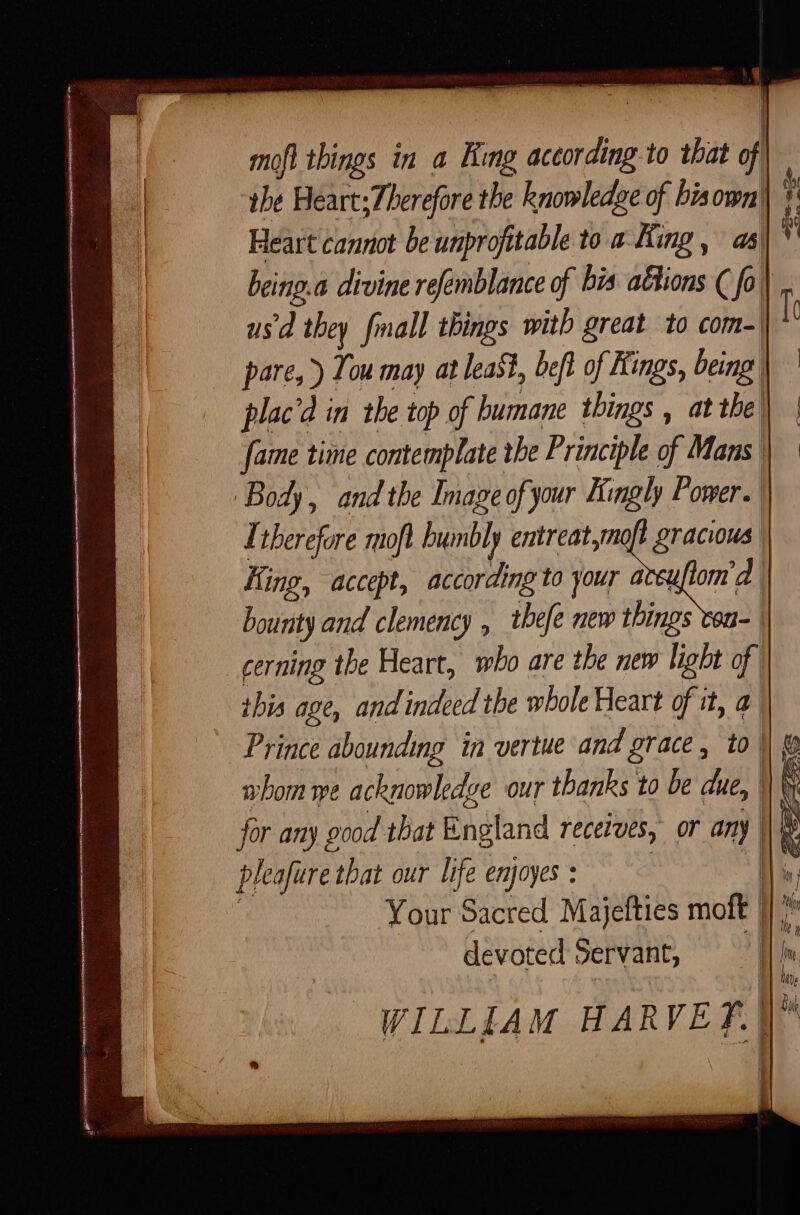 moſt things in a King according to that of
the Heart;Therefore the knowledge of his own
Heart cannot be unprofitable to a King, as
being.a divine reſemblance of his actions (ſo
us'd they ſmall things with great to com-
pare,) You may at leaſt, beſt of Kings, being
plac'd in the top of humane things, at the
ſame time contemplate the Principle of Mans
Body, and the Image of your Kingly Power.
I therefore moſt humbly entreat,moſt gracious
King, accept, according to your accuſtom'd
bounty and clemency, theſe new things con-
cerning the Heart, who are the new light of
this age, and indeed the whole Heart of it, a
Prince abounding in vertue and grace, to
whom we acknowledge our thanks to be due,
for any good that England receives, or any
pleaſure that our life enjoyes :
Your Sacred Majeſties moſt
devoted Servant,
WILLIAM HARVEY.
To